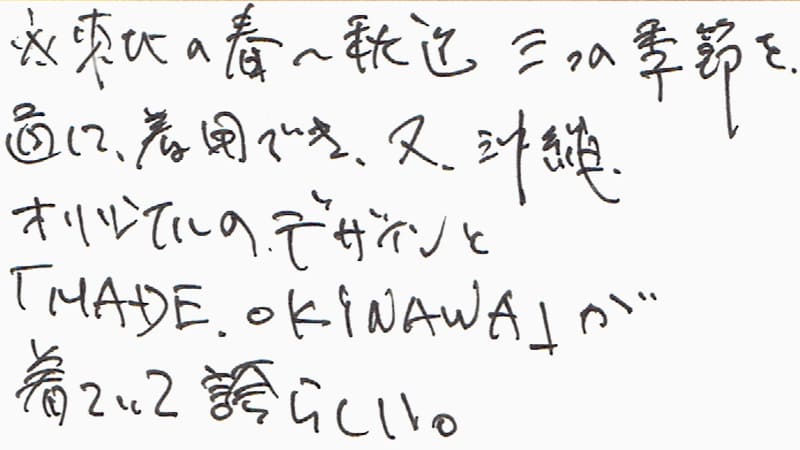 ※東北の春～秋迄 三つの季節を、
通して、着用でき、又、沖縄、
オリジナルの、デザインと
「MADE. OKINAWA」が
着ていて誇らしい。